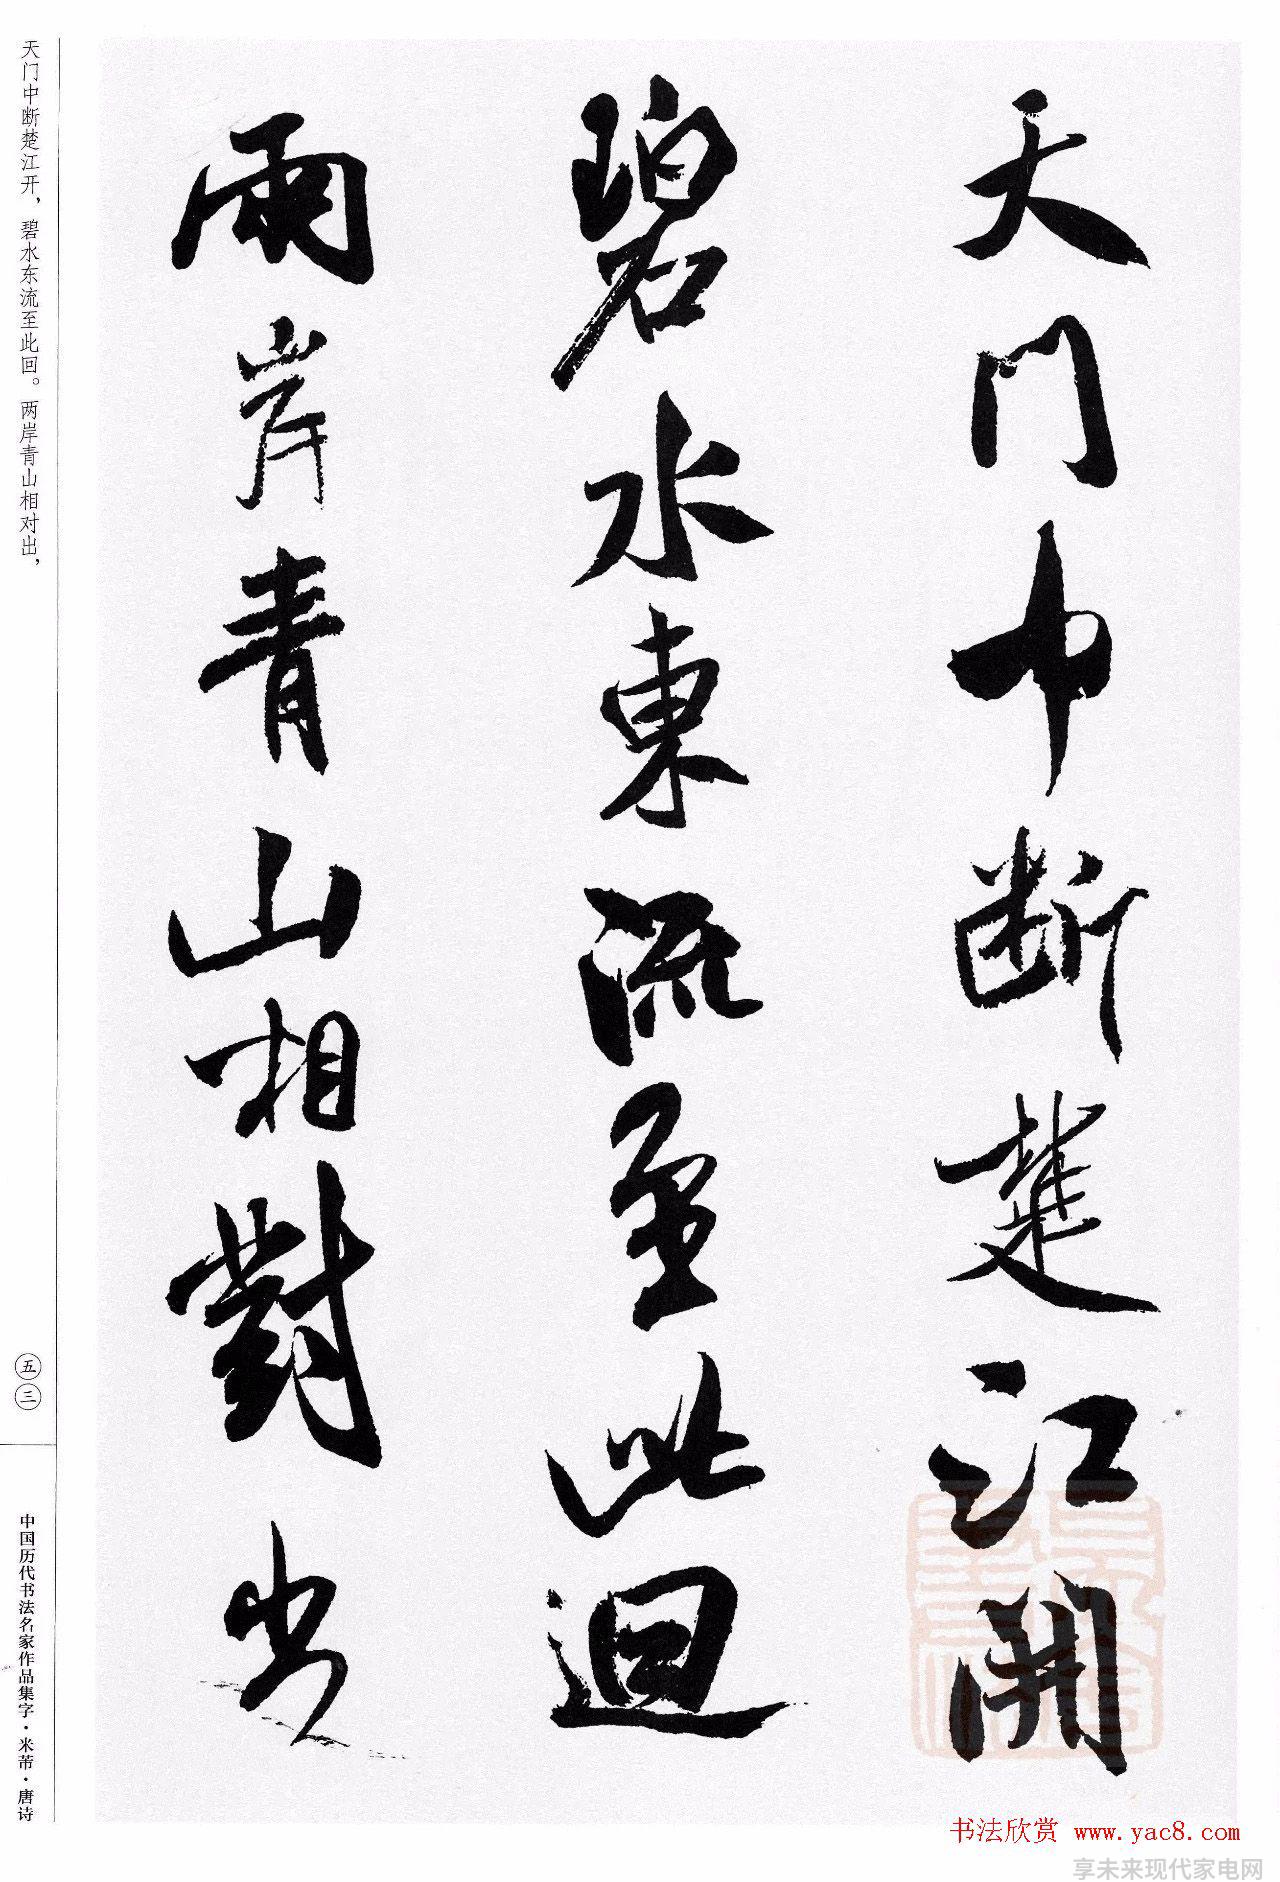 天門中斷楚江開
碧水東流至此迴
兩岸青山相對出
天门中断楚江开，碧水东流至此回。两岸青山相对出，
五三
中国历代书法名家作品集字·米芾·唐诗
书法欣赏 www.yac8.com
享未来现代家电网